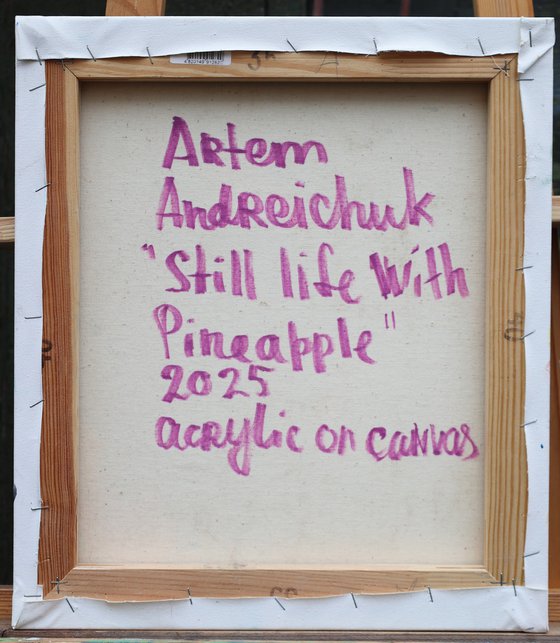 Artem
Andreichuk
"Still life with
Pineapple"
2025
acrylic on canvas